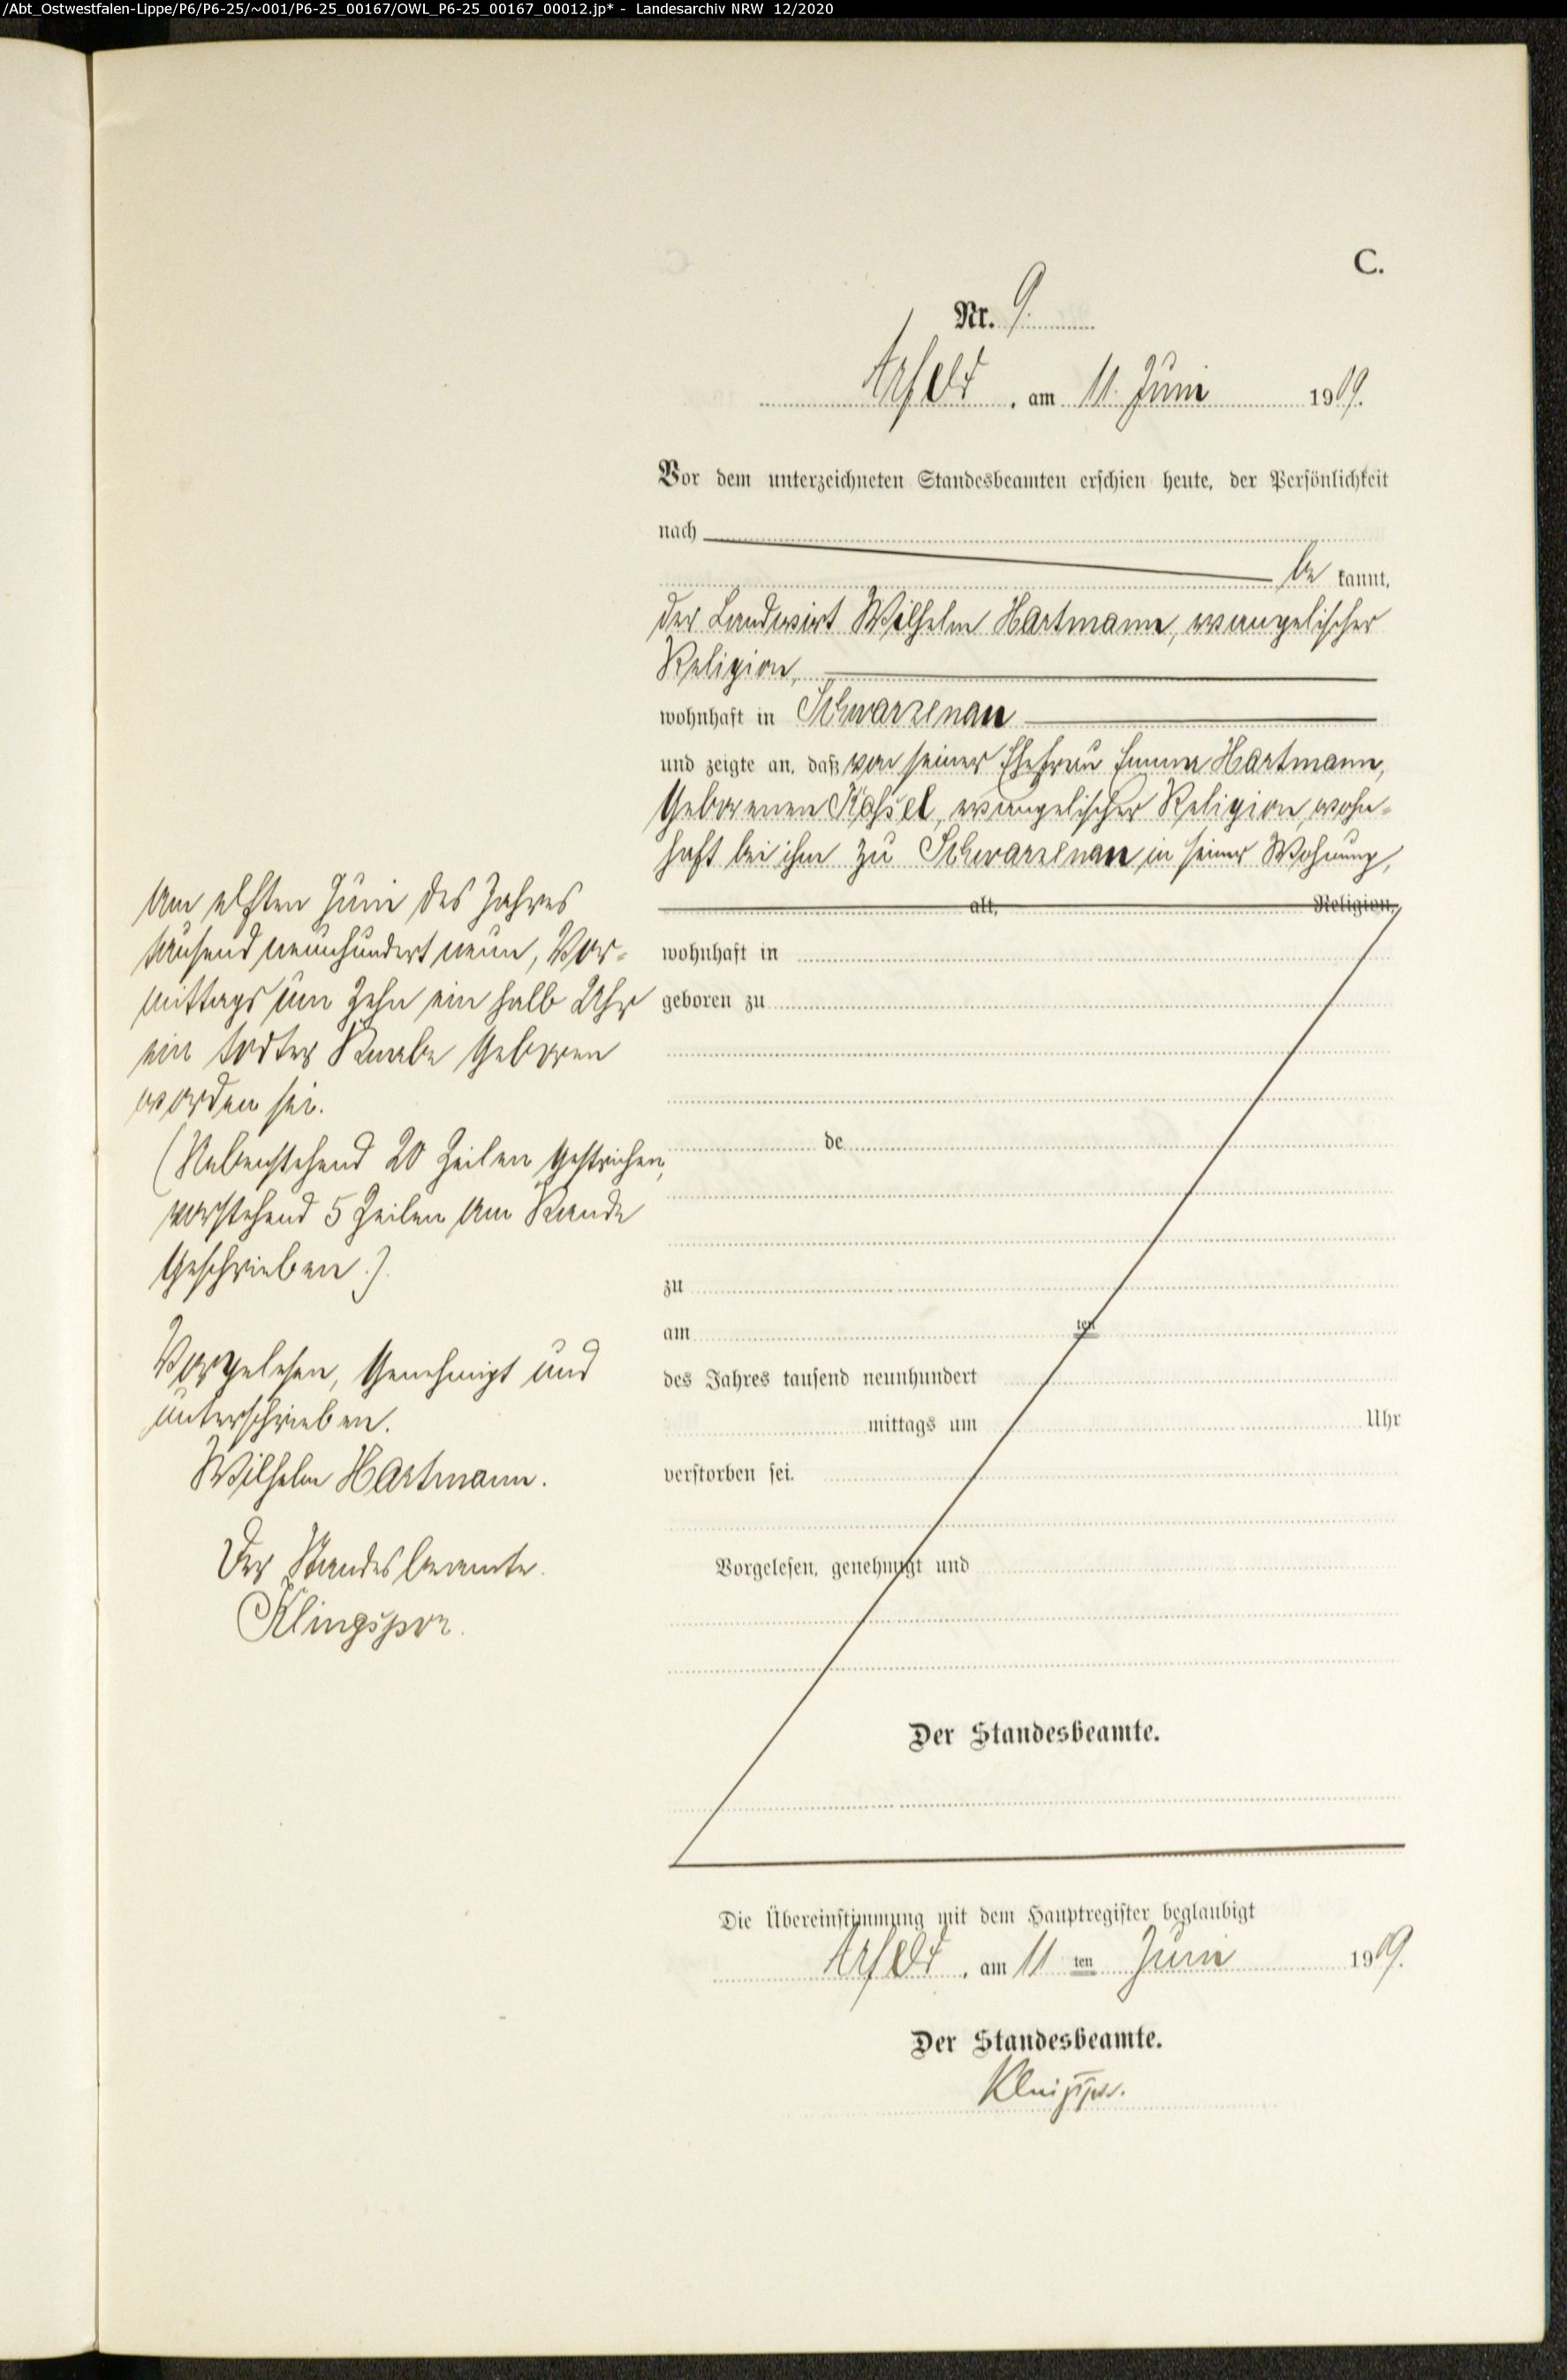 /Abt_Ostwestfalen-Lippe/P6/P6-25/~001/P6-25_00167/OWL_P6-25_00167_00012.jp* - Landesarchiv NRW 12/2020
C.
Nr. 9.
Arfeld, am 11. Juni 1909.
Vor dem unterzeichneten Standesbeamten erschien heute, der Persönlichkeit
nach
be kannt,
der Landwirt Wilhelm Hartmann, evangelischer
Religion,
wohnhaft in Schwarzenau
und zeigte an, daß von seiner Ehefrau Emma Hartmann,
geborenen Kassel, evangelischer Religion, wohn-
haft bei ihm zu Schwarzenau in seiner Wohnung,
alt, Religion,
am elften Juni des Jahres
tausend neunhundert neun, Vor-
mittags um zehn ein halb Uhr
ein todter Knabe geboren
worden sei.
(Nebenstehend 20 Zeilen gestrichen,
vorstehend 5 Zeilen am Rande
geschrieben.)
Vorgelesen, genehmigt und
unterschrieben.
Wilhelm Hartmann.
Der Standesbeamte.
Klingspor.
wohnhaft in
geboren zu
de
zu
am ten
des Jahres tausend neunhundert
mittags um Uhr
verstorben sei.
Vorgelesen, genehmigt und
Der Standesbeamte.
Die Übereinstimmung mit dem Hauptregister beglaubigt
Arfeld, am 11 ten Juni 1909.
Der Standesbeamte.
Klingspor.